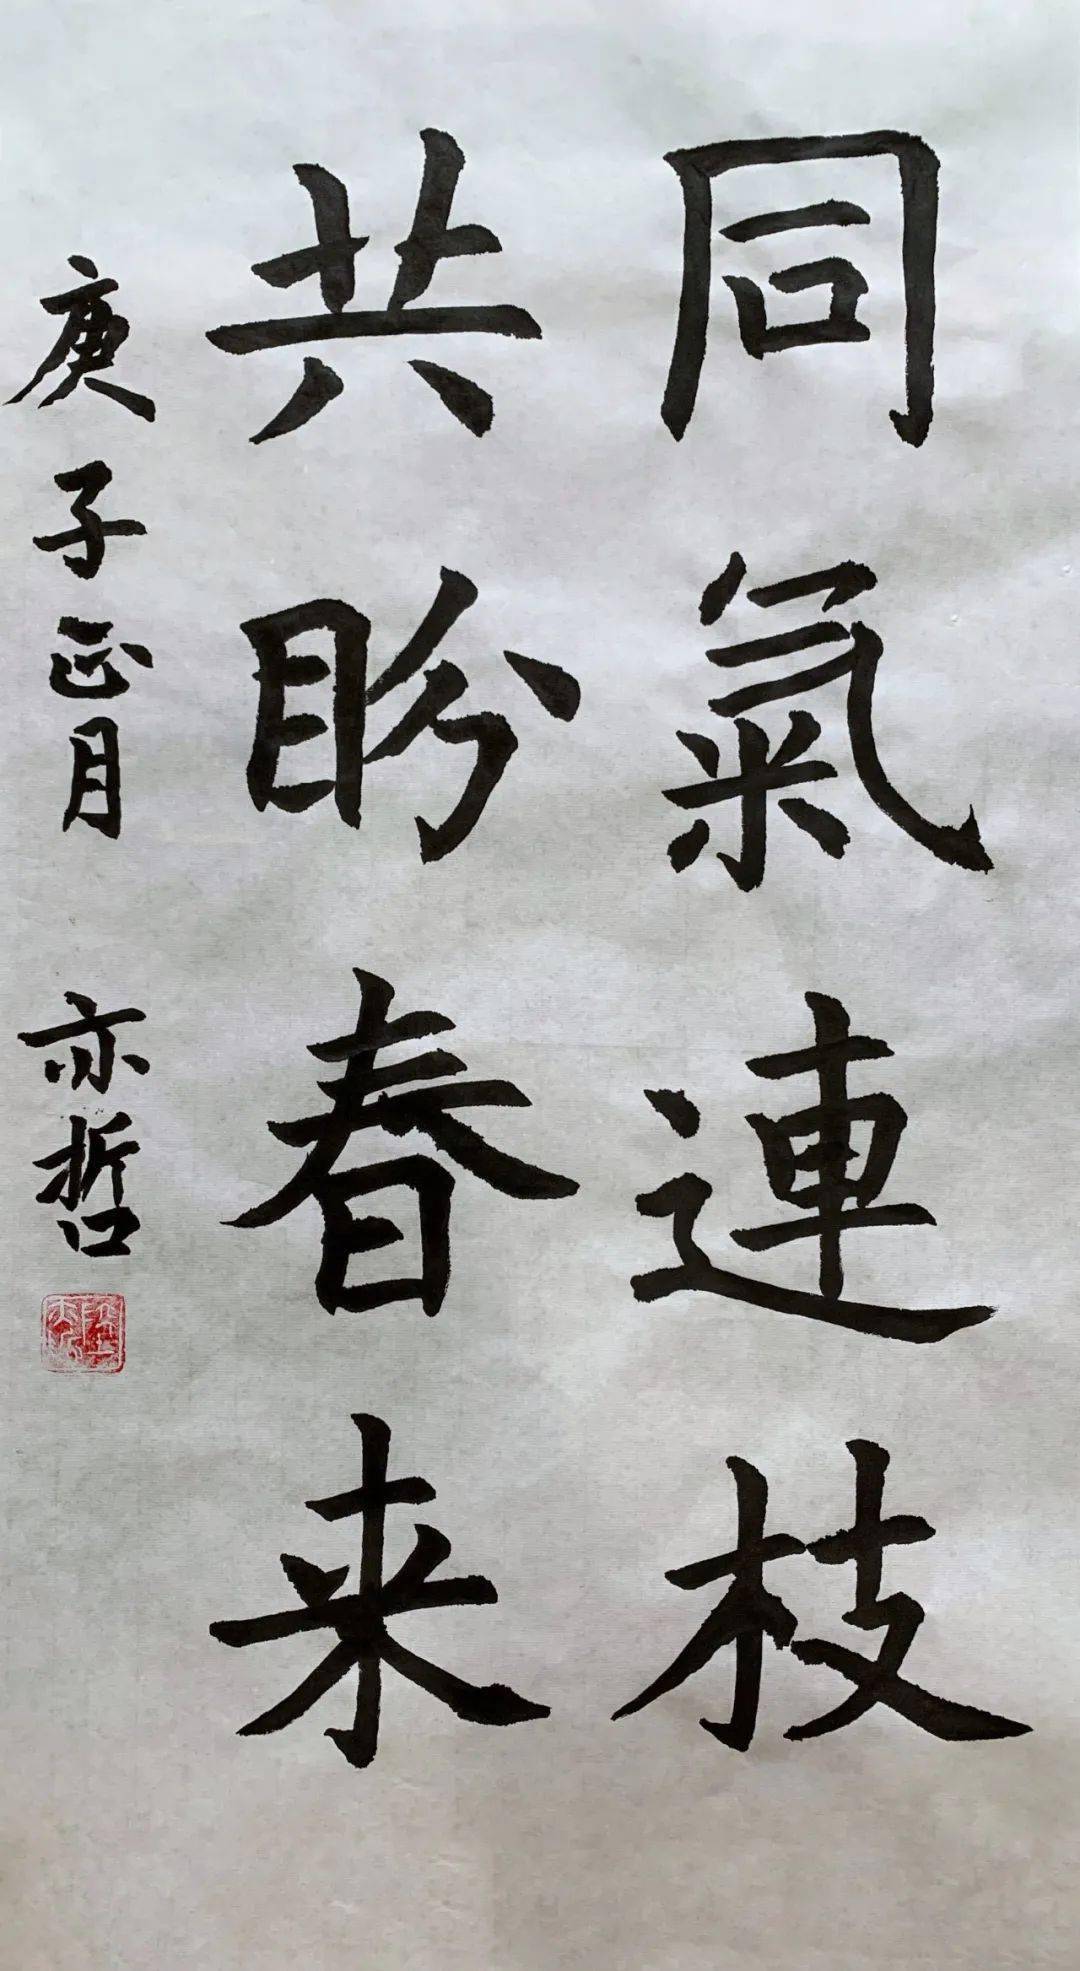 同氣連枝
共盼春来
庚子正月 亦哲